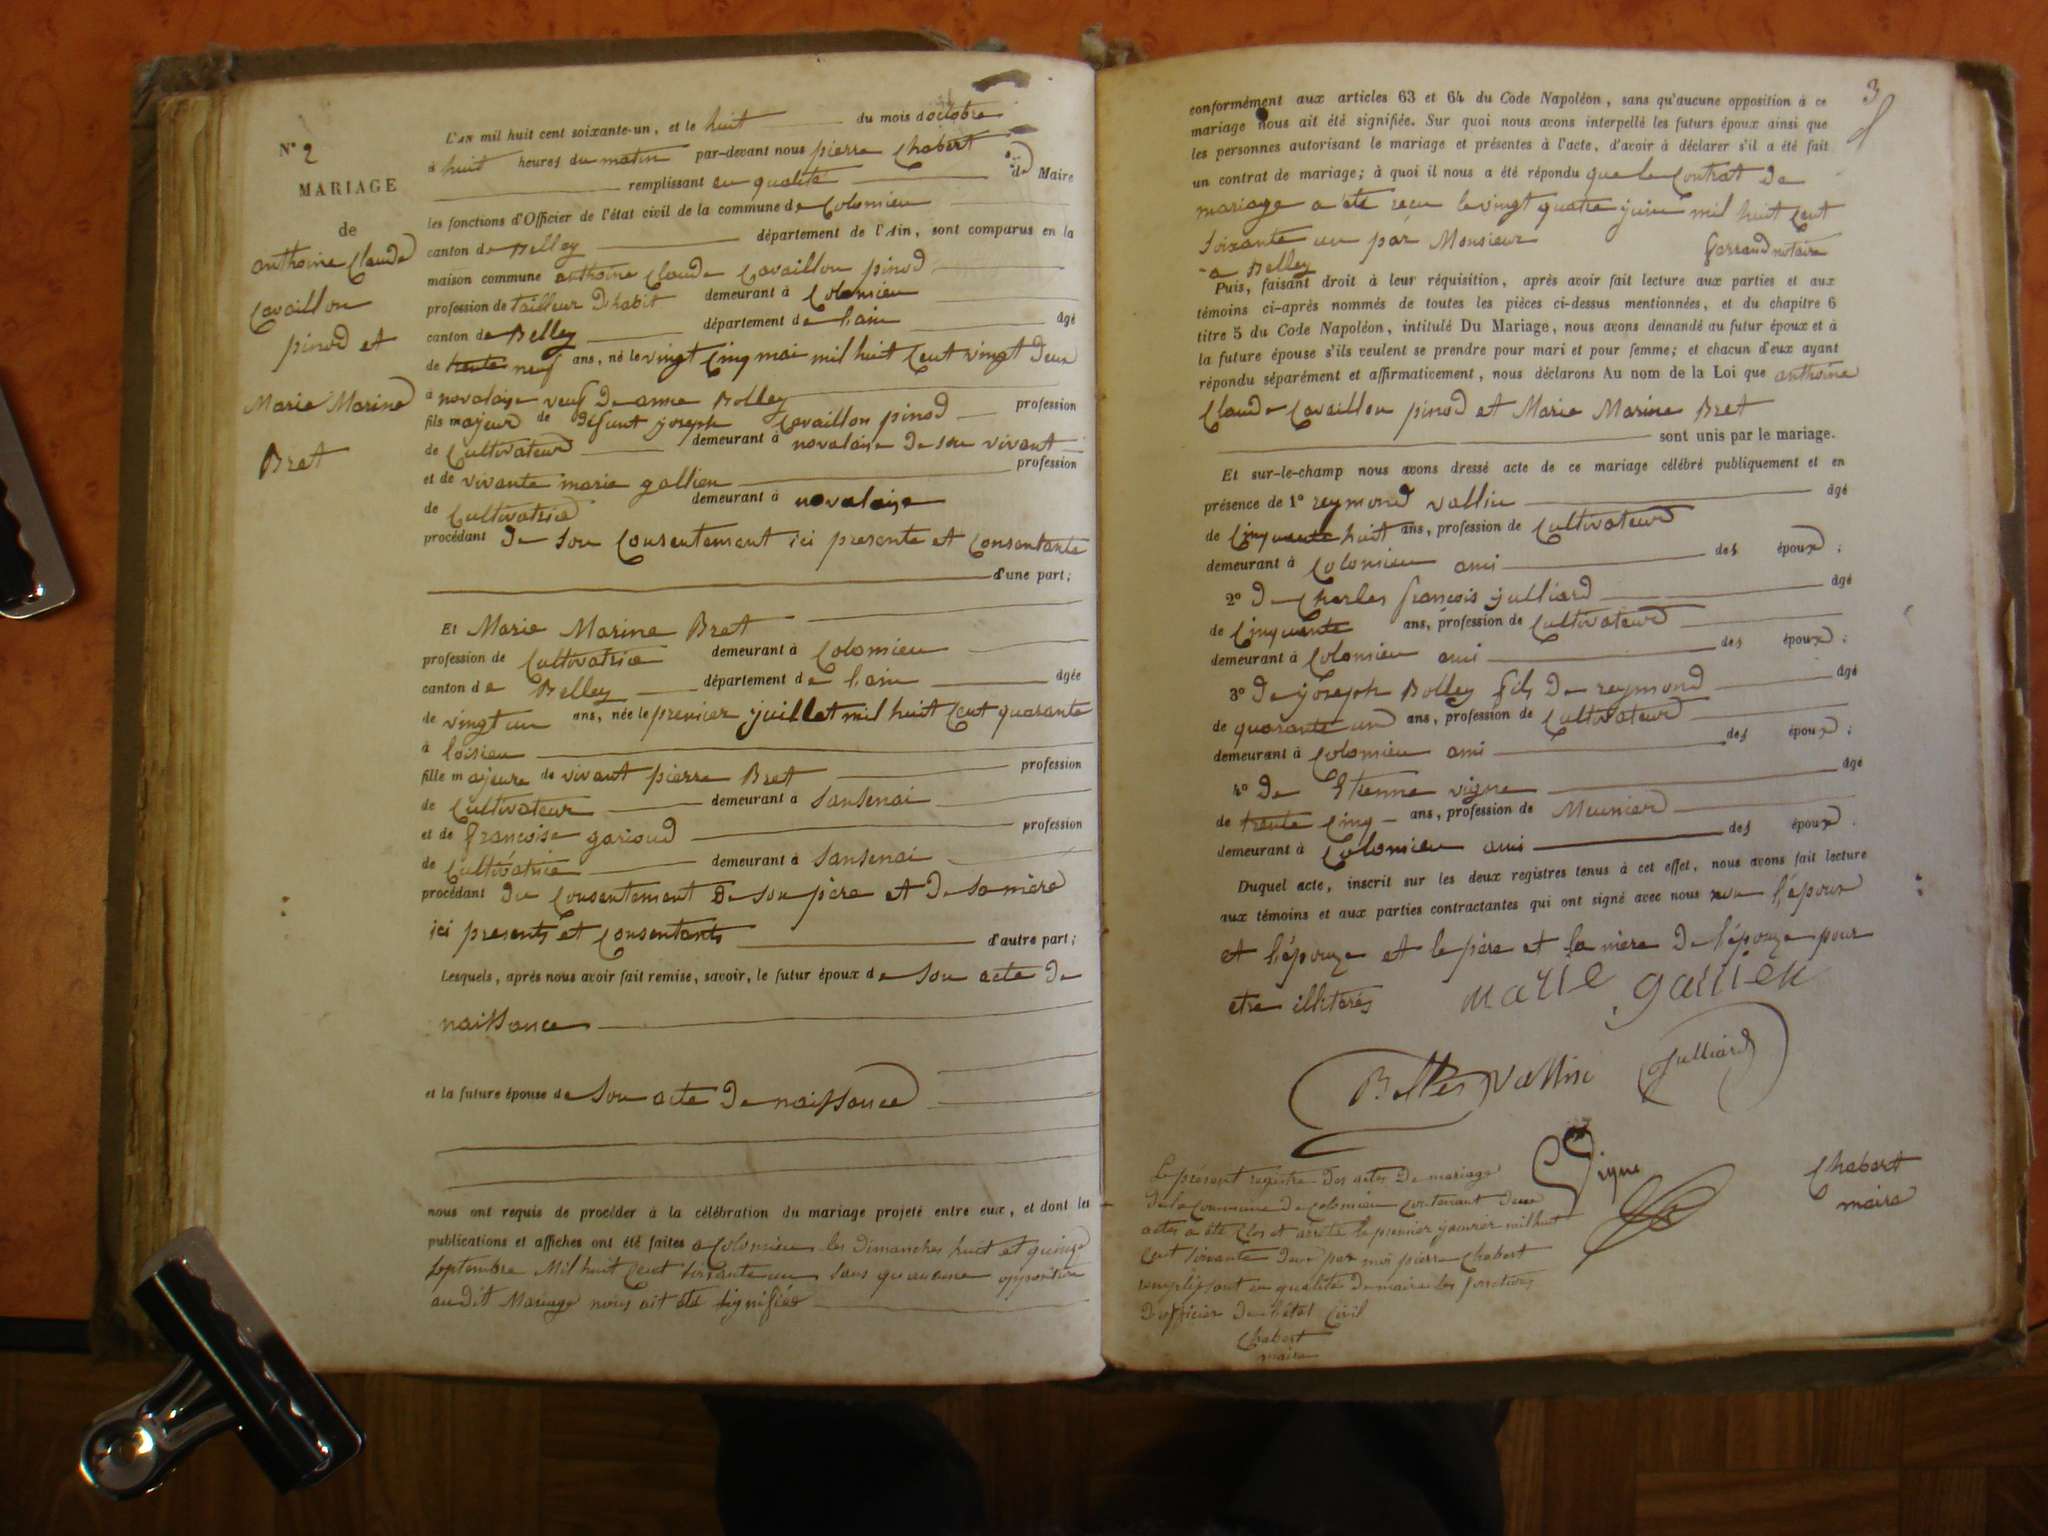 N° 2
MARIAGE
de
anthoine Claude
Cavaillon
pinod et
Marie Marine
Bret
L'an mil huit cent soixante-un, et le huit du mois d'octobre
à huit heures du matin par-devant nous pierre Chabert
remplissant en qualité de Maire
les fonctions d'Officier de l'état civil de la commune de Colomieu
canton de Belley département de l'Ain, sont comparus en la
maison commune anthoine Claude Cavaillon pinod
profession de tailleur D'habit demeurant à Colomieu
canton de Belley département de l'ain âgé
de trente neuf ans, né le vingt Cinq mai mil huit Cent vingt deux
à novalaise veuf De anne Bolley
fils majeur de défunt joseph Cavaillon pinod profession
de Cultivateur demeurant à novalaise De son vivant
et de vivante marie gallien profession
de Cultivatrice demeurant à novalaise
procédant De son Consentement ici presente et Consentante
d'une part;
Et Marie Marine Bret
profession de Cultivatrice demeurant à Colomieu
canton de Belley département de l'ain âgée
de vingt un ans, née le premier juillet mil huit Cent quarante
à loisieu
fille majeure de vivant pierre Bret profession
de Cultivateur demeurant à Sansenai
et de françoise garioud profession
de Cultivatrice demeurant à Sansenai
procédant du Consentement De son père et De sa mère
ici presents et Consentants d'autre part;
Lesquels, après nous avoir fait remise, savoir, le futur époux de Son acte De
naissance
et la future épouse de Son acte De naissance
nous ont requis de procéder à la célébration du mariage projeté entre eux, et dont les
publications et affiches ont été faites a Colomieu les dimanches huit et quinze
Septembre Mil huit Cent soixante un sans qu'aucune opposition
audit Mariage nous ait été signifiée
3
conformément aux articles 63 et 64 du Code Napoléon, sans qu'aucune opposition à ce
mariage nous ait été signifiée. Sur quoi nous avons interpellé les futurs époux ainsi que
les personnes autorisant le mariage et présentes à l'acte, d'avoir à déclarer s'il a été fait
un contrat de mariage; à quoi il nous a été répondu que le Contrat De
mariage a été reçu le vingt quatre juin mil huit Cent
Soixante un par Monsieur Gerraud notaire
a Belley
Puis, faisant droit à leur réquisition, après avoir fait lecture aux parties et aux
témoins ci-après nommés de toutes les pièces ci-dessus mentionnées, et du chapitre 6
titre 5 du Code Napoléon, intitulé Du Mariage, nous avons demandé au futur époux et à
la future épouse s'ils veulent se prendre pour mari et pour femme; et chacun d'eux ayant
répondu séparément et affirmativement, nous déclarons Au nom de la Loi que anthoine
Claude Cavaillon pinod et Marie Marine Bret
sont unis par le mariage.
Et sur-le-champ nous avons dressé acte de ce mariage célébré publiquement et en
présence de 1° reymond vallin âgé
de Cinquante huit ans, profession de Cultivateur
demeurant à Colomieu ami des époux;
2° De Charles françois julliard âgé
de Cinquante ans, profession de Cultivateur
demeurant à Colomieu ami des époux;
3° De joseph Bolley fils De reymond âgé
de quarante un ans, profession de Cultivateur
demeurant à Colomieu ami des époux;
4° De Etienne vigne âgé
de trente Cinq ans, profession de Meunier
demeurant à Colomieu ami des époux.
Duquel acte, inscrit sur les deux registres tenus à cet effet, nous avons fait lecture
aux témoins et aux parties contractantes qui ont signé avec nous non l'époux
et l'épouze et le père et la mère De l'épouze pour
etre illiterés marie gallien
Bolley Vallin Julliard
Vigne
Chabert
maire
Le présent registre Des actes De mariage
De la Commune De Colomieu Contenant deux
actes a été Clos et arrêté le premier janvier mil huit
Cent soixante deux par moi pierre Chabert
remplissant en qualité De maire les fonctions
D'officier De l'état Civil
Chabert
maire